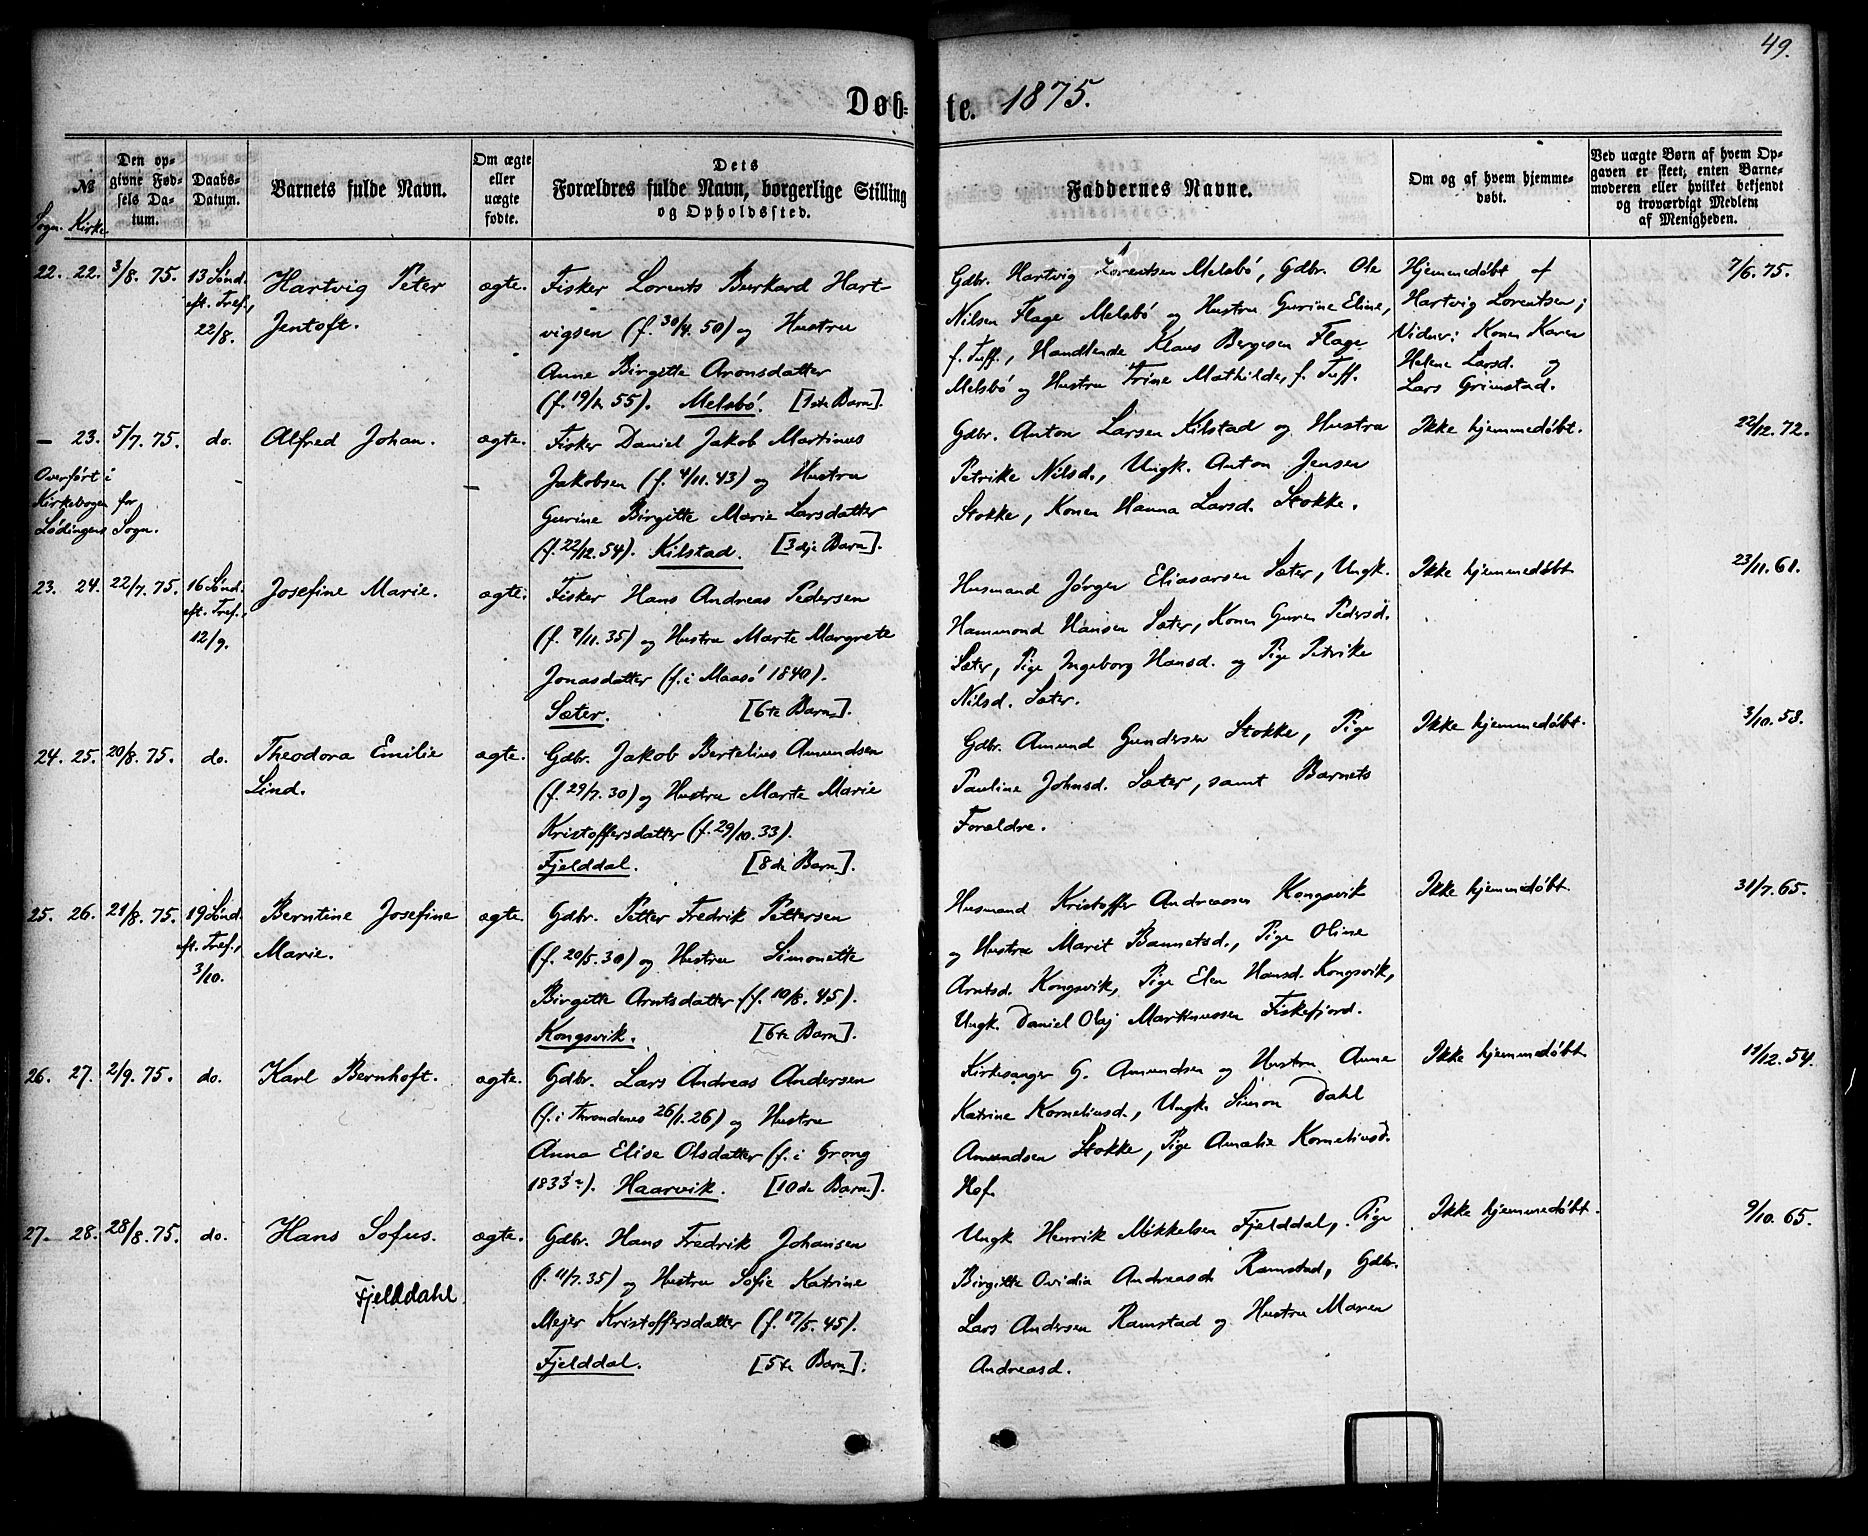 49.
Døb-te. 1875.
№
Sogn. Kirke.
Den op-
givne Fød-
sels Da-
tum.
Daabs-
Datum.
Barnets fulde Navn.
Om ægte
eller
uægte
fødte.
Dets
Forældres fulde Navn, borgerlige Stilling
og Opholdssted.
Faddernes Navne.
Om og af hvem hjemme-
døbt.
Ved uægte Børn af hvem Op-
gaven er skeet; enten Barne-
moderen eller hvilket bekjendt
og troværdigt Medlem
af Menigheden.
22. 22. 3/8. 75.
13 Sønd.
eft. Tref.,
22/8.
Hartvig Peter
Jentoft.
ægte.
Fisker Lorents Burkard Hart-
vigsen (f. 30/4. 50) og Hustru
Anne Birgitte Aronsdatter
(f. 19/12 55). Melsbö. [1ste Barn].
Gdbr. Hartvig Lorentsen Melsbö, Gdbr. Ole
Nilsen Flage Melsbö og Hustru Gurine Eline,
f. Tuff., Handlende Klaus Bergesen Flage
Melsbö og Hustru Trine Mathilde, f. Tuff.
Hjemmedøbt af
Hartvig Lorentsen;
Vidner: Konen Karen
Helene Larsd. og
Lars Grimstad.
7/6. 75.
— 23. 5/7. 75. do.
Overført i
Kirkebogen for
Lödingens Sogn.
Alfred Johan.
ægte.
Fisker Daniel Jakob Martinus
Jakobsen (f. 4/11. 43) og Hustru
Gurine Birgitte Marie Larsdatter
(f. 22/12. 54). Kilstad. [3dje Barn].
Gdbr. Anton Larsen Kilstad og Hustru
Petrike Nilsd., Ungk. Anton Jensen
Stokke, Konen Hanna Larsd. Stokke.
Ikke hjemmedøbt.
22/12. 72.
23. 24. 22/7. 75.
16 Sønd.
eft. Tref.,
12/9.
Josefine Marie.
ægte.
Fisker Hans Andreas Pedersen
(f. 7/11. 35) og Hustru Marte Margrete
Jonasdatter (f. i Maasö 1840).
Sæter. [6te Barn].
Husmand Jørgen Eliasarsen Sæter, Ungk.
Hammond Hansen Sæter, Konen Guren Pedersd.
Sæter, Pige Ingeborg Hansd. og Pige Petrike
Nilsd. Sæter.
Ikke hjemmedøbt
23/11. 61.
24. 25. 20/8. 75. do.
Theodora Emilie
Lind.
ægte.
Gdbr. Jakob Bertelius Amundsen
(f. 29/7. 30) og Hustru Marte Marie
Kristoffersdatter (f. 29/10. 33).
Fjelddal. [8de Barn].
Gdbr. Amund Gundersen Stokke, Pige
Pauline Johnsd. Sæter, samt Barnets
Forældre.
Ikke hjemmedøbt.
3/10. 58.
25. 26. 21/8. 75.
19 Sønd.
eft. Tref.,
3/10.
Berntine Josefine
Marie.
ægte.
Gdbr. Petter Fredrik Pettersen
(f. 20/5. 30) og Hustru Simonette
Birgitte Arntsdatter (f. 10/8. 45).
Kongsvik. [6te Barn].
Husmand Kristoffer Andreassen Kongsvik
og Hustru Marit Bannetsd., Pige Oline
Arntsd. Kongsvik, Pige Elen Hansd. Kongsvik,
Ungk. Daniel Olaj Martinussen Fiskefjord.
Ikke hjemmedøbt.
31/7. 65.
26. 27. 2/9. 75. do.
Karl Bernhoft.
ægte.
Gdbr. Lars Andreas Andersen
(f. i Throndenes 26/1. 26) og Hustru
Anna Elise Olsdatter (f. i Grong
1833). Haarvik. [10de Barn].
Kirkesanger G. Amundsen og Hustru Anne
Katrine Korneliusd., Ungk. Simon Dahl
Amundsen Stokke, Pige Amalie Korneliusd.
Hof.
Ikke hjemmedøbt
11/12. 54.
27. 28. 28/8. 75. do.
Hans Sofus.
Fjelddahl
ægte.
Gdbr. Hans Fredrik Johansen
(f. 11/7. 35) og Hustru Sofie Katrine
Mejer Kristoffersdatter (f. 17/5. 45).
Fjelddal. [5te Barn].
Ungk Henrik Mikkelsen Fjelddal, Pige
Birgitte Ovidia Andreasd Ramstad, Gdbr.
Lars Andersen Ramstad og Hustru Maren
Andreasd.
Ikke hjemmedøbt.
9/10. 65.